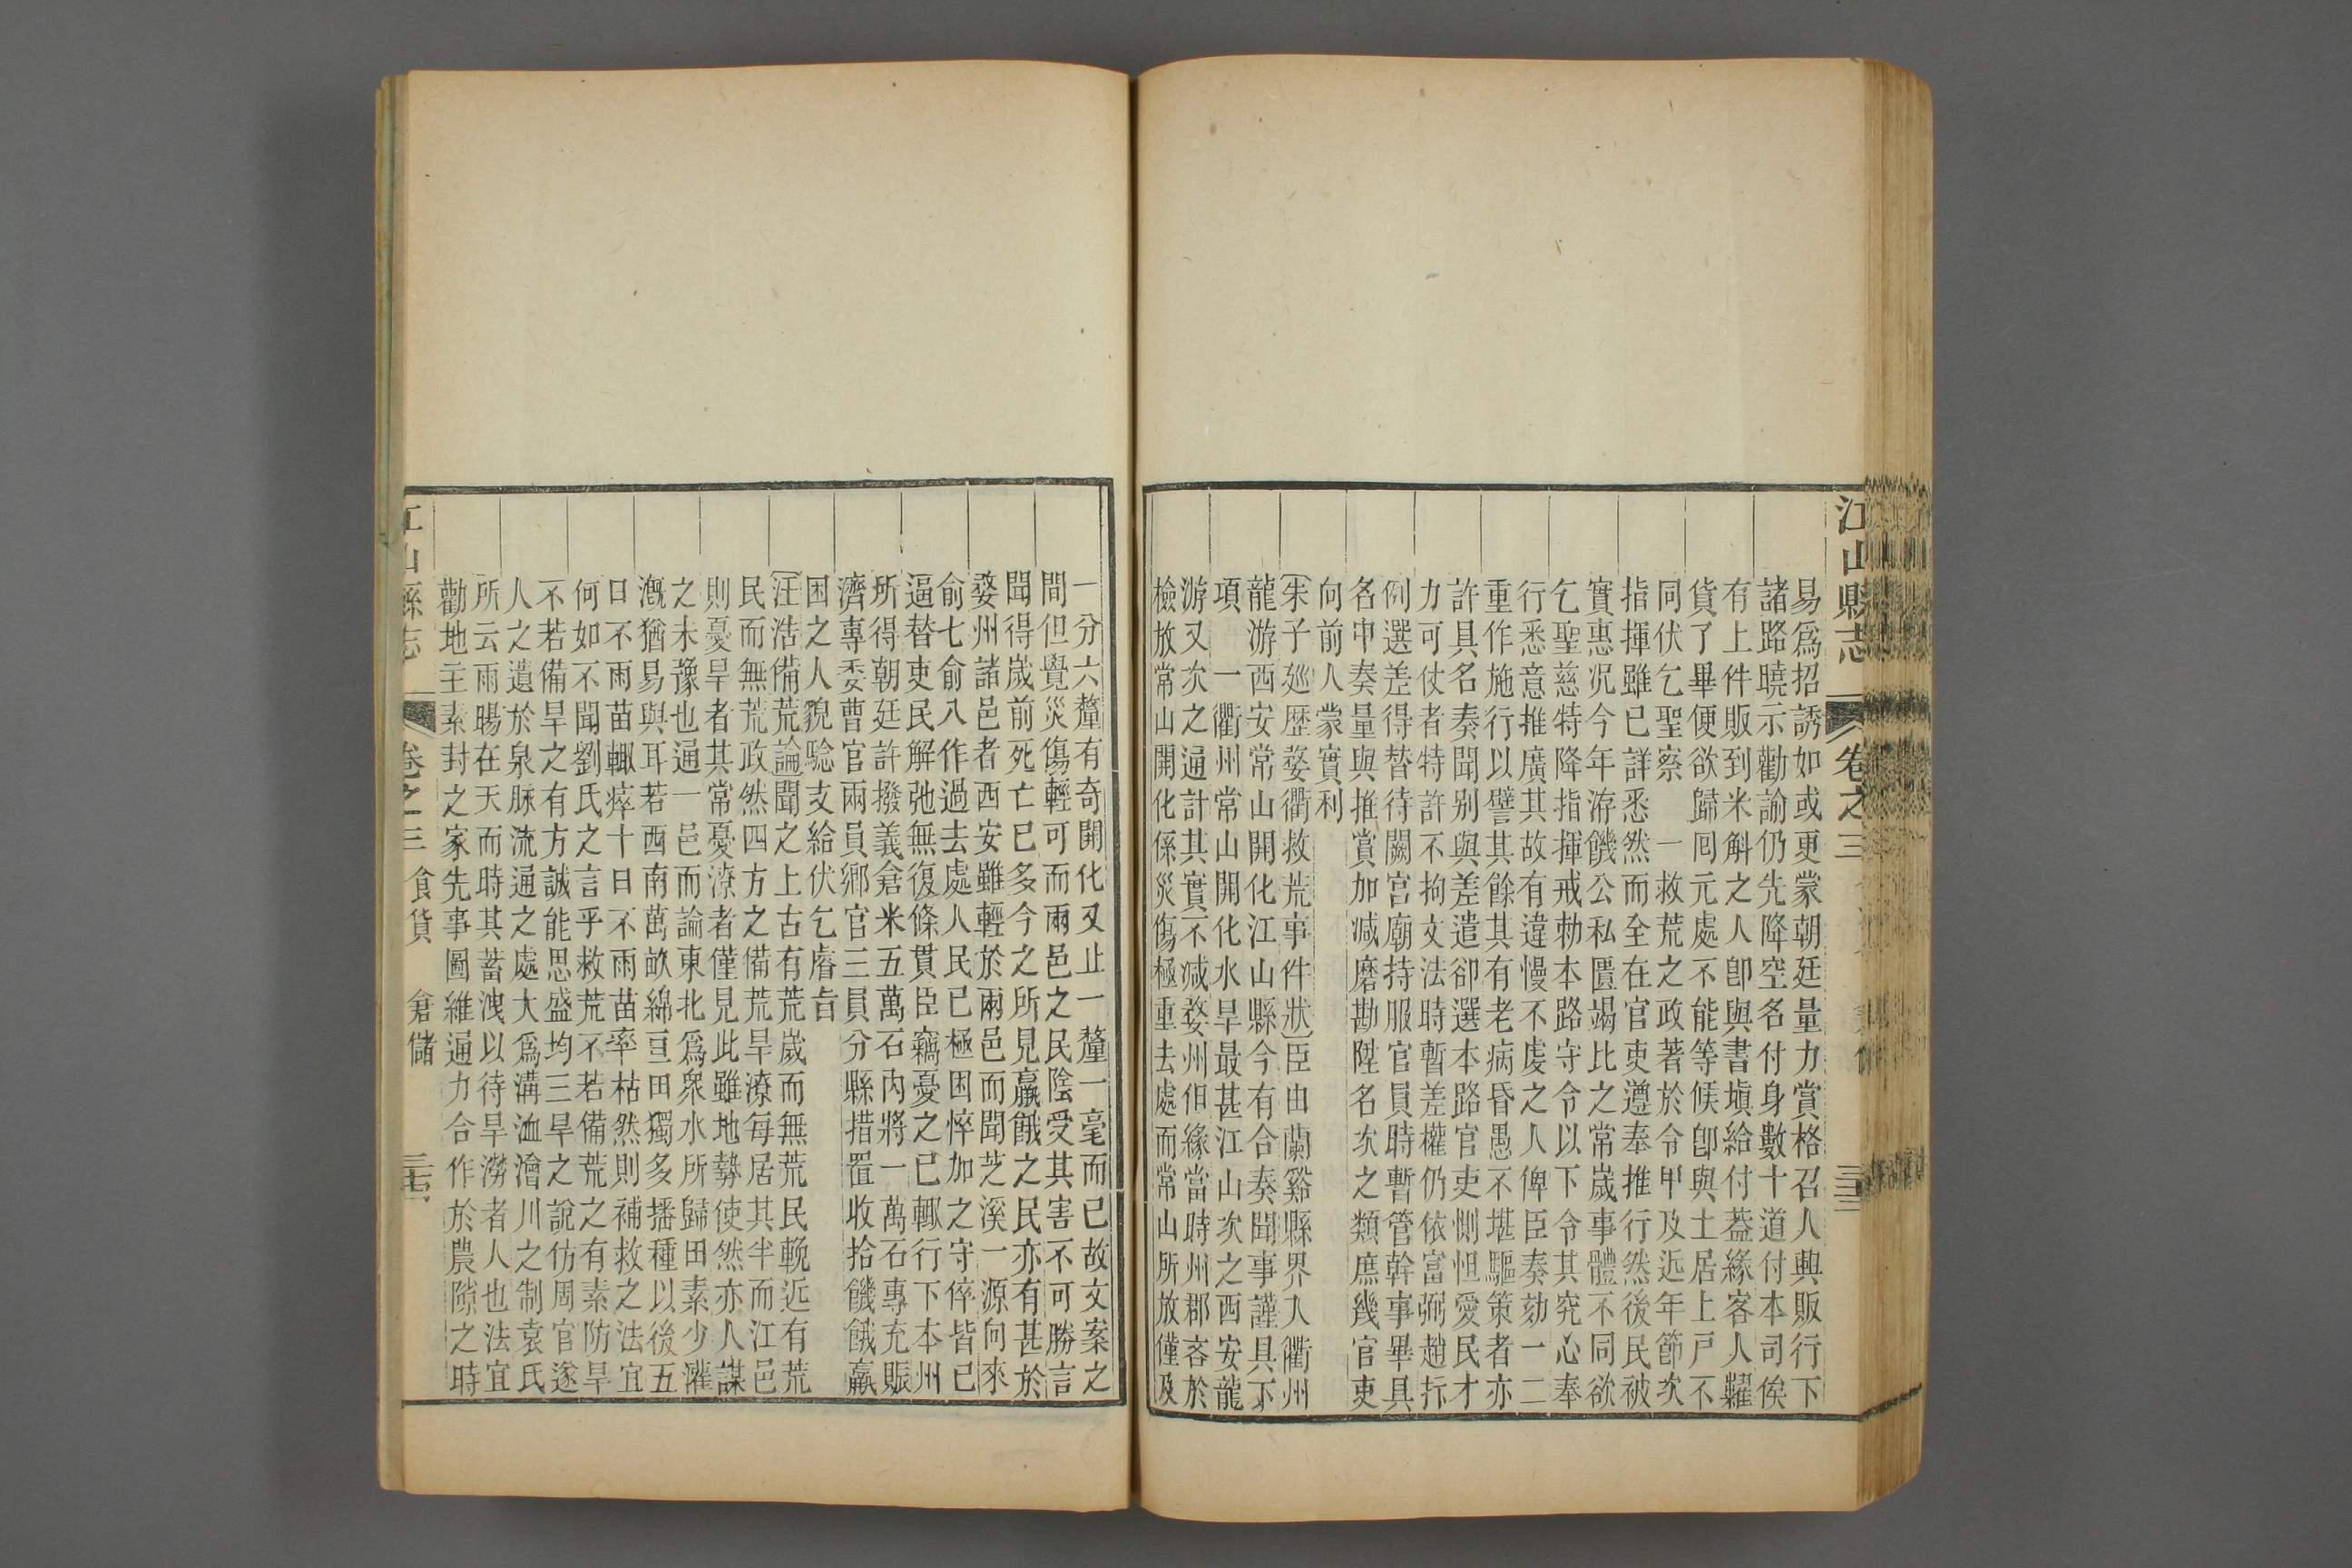 江山縣志 卷之三
易爲招誘如或更蒙朝廷量力賞格召人興販行下
諸路曉示勸諭仍先降空名付身數十道付本司俟
有上件販到米斛之人卽與書塡給付葢緣客人糶
貨了畢便欲歸囘元處不能等候卽與土居上戸不
同伏乞聖察　一救荒之政著於令甲及近年節次
指揮雖已詳悉然而全在官吏遵奉推行然後民被
實惠况今年游饑公私匱竭比之常歲事體不同欲
乞聖慈特降指揮戒勅本路守令以下令其究心奉
行悉意推廣其故有違慢不虔之人俾臣奏劾一二
重作施行以譬其餘其有老病昏愚不堪驅策者亦
許具名奏聞别與差遣卻選本路官吏惻怛愛民才
力可使者特許不拘文法時暫差權仍依富弼趙抃
例選差得替待闕宮廟持服官員時暫管幹事畢具
名申奏量與推賞加减磨勘陞名次之類庶幾官吏
向前人蒙實利
朱子廵歴婺衢救荒事件狀臣由蘭谿縣界入衢州
龍游西安常山開化江山縣今有合奏聞事謹具下
項　一衢州常山開化水旱最甚江山次之西安龍
游又次之通計其實不减婺州但緣當時州郡吝於
檢放常山開化係災傷極重去處而常山所放僅及
一分六釐有奇開化又止一釐一毫而已故文案之
間但覺災傷輕可而兩邑之民陰受其害不可勝言
聞得嵗前死亡已多今之所見羸餓之民亦有甚於
婺州諸邑者西安雖輕於兩邑而聞芝溪一源向來
俞七俞八作過去處人民已極困悴加之守倅皆已
逼替吏民解弛無復條貫臣竊憂之已輙行下本州
所得朝廷許撥義倉米五萬石内將一萬石專充賑
濟專委曹官兩員鄉官三員分縣措置收拾饑餓羸
困之人貌騐支給伏乞睿旨
汪浩備荒論聞之上古有荒歲而無荒民輓近有荒
民而無荒政然四方之備荒旱潦每居其半而江邑
則憂旱者其常憂潦者僅見此雖地勢使然亦人謀
之未豫也通一邑而論東北爲衆水所歸田素少灌
漑猶易與耳若西南萬畝綿亘田獨多播種以後五
日不雨苗輙瘁十日不雨苗率枯然則補救之法宜
何如不聞劉氏之言乎救荒不若備荒之有素防旱
不若備旱之有方誠能思盛均三旱之說仿周官遂
人之遺於泉脉流通之處大爲溝洫澮川之制袁氏
所云雨暘在天而時其蓄洩以待旱澇者人也法宜
勸地主素封之家先事圖維通力合作於農隙之時
江山縣志 卷之三 食貨 倉儲